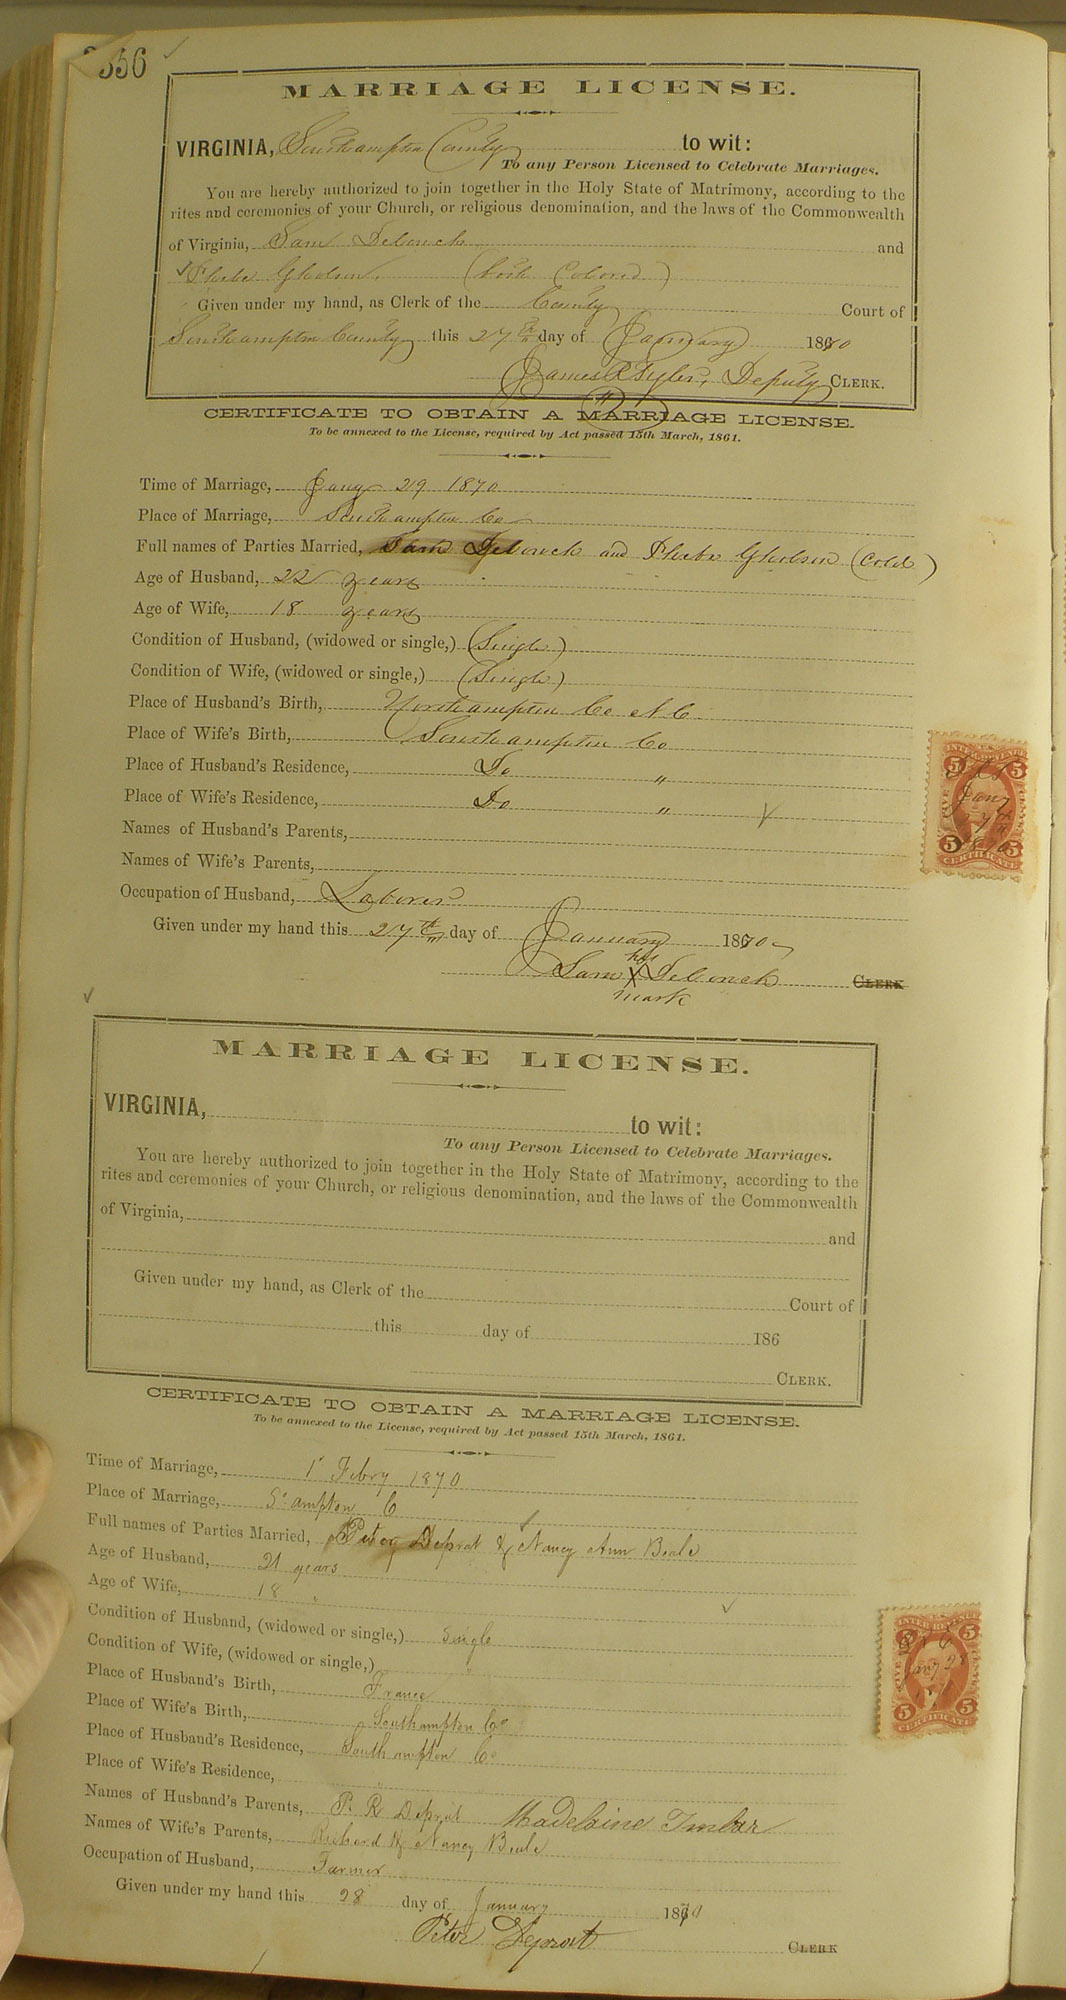 356
MARRIAGE LICENSE.
VIRGINIA, Southampton County to wit:
To any Person Licensed to Celebrate Marriages.
You are hereby authorized to join together in the Holy State of Matrimony, according to the
rites and ceremonies of your Church, or religious denomination, and the laws of the Commonwealth
of Virginia, Sam Deloach and
Phebe Gholson (both Colored)
Given under my hand, as Clerk of the County Court of
Southampton County this 27th day of January 1870
James R Tyler, Deputy CLERK.
CERTIFICATE TO OBTAIN A MARRIAGE LICENSE.
To be annexed to the License, required by Act passed 15th March, 1861.
Time of Marriage, Jany 29 1870
Place of Marriage, Southampton Co
Full names of Parties Married, Sam Deloach and Phebe Gholson (Cold)
Age of Husband, 22 years
Age of Wife, 18 years
Condition of Husband, (widowed or single,) (Single)
Condition of Wife, (widowed or single,) (Single)
Place of Husband's Birth, Northampton Co N.C.
Place of Wife's Birth, Southampton Co
Place of Husband's Residence, Do "
Place of Wife's Residence, Do "
Names of Husband's Parents,
Names of Wife's Parents,
Occupation of Husband, Laborer
Given under my hand this 27th day of January 1870
his
Sam X Deloach CLERK
mark
MARRIAGE LICENSE.
VIRGINIA, to wit:
To any Person Licensed to Celebrate Marriages.
You are hereby authorized to join together in the Holy State of Matrimony, according to the
rites and ceremonies of your Church, or religious denomination, and the laws of the Commonwealth
of Virginia, and
Given under my hand, as Clerk of the Court of
this day of 186
CLERK.
CERTIFICATE TO OBTAIN A MARRIAGE LICENSE.
To be annexed to the License, required by Act passed 15th March, 1861.
Time of Marriage, 1st Febry 1870
Place of Marriage, So ampton C
Full names of Parties Married, Peter Deprat & Nancy Ann Beale
Age of Husband, 21 years
Age of Wife, 18 "
Condition of Husband, (widowed or single,) Single
Condition of Wife, (widowed or single,) "
Place of Husband's Birth, France
Place of Wife's Birth, Southampton Co
Place of Husband's Residence, Southampton Co
Place of Wife's Residence, "
Names of Husband's Parents, P. R Deprat Madelaine Imbar
Names of Wife's Parents, Richard & Nancy Beale
Occupation of Husband, Farmer
Given under my hand this 28 day of January 1870
Peter Deprat CLERK